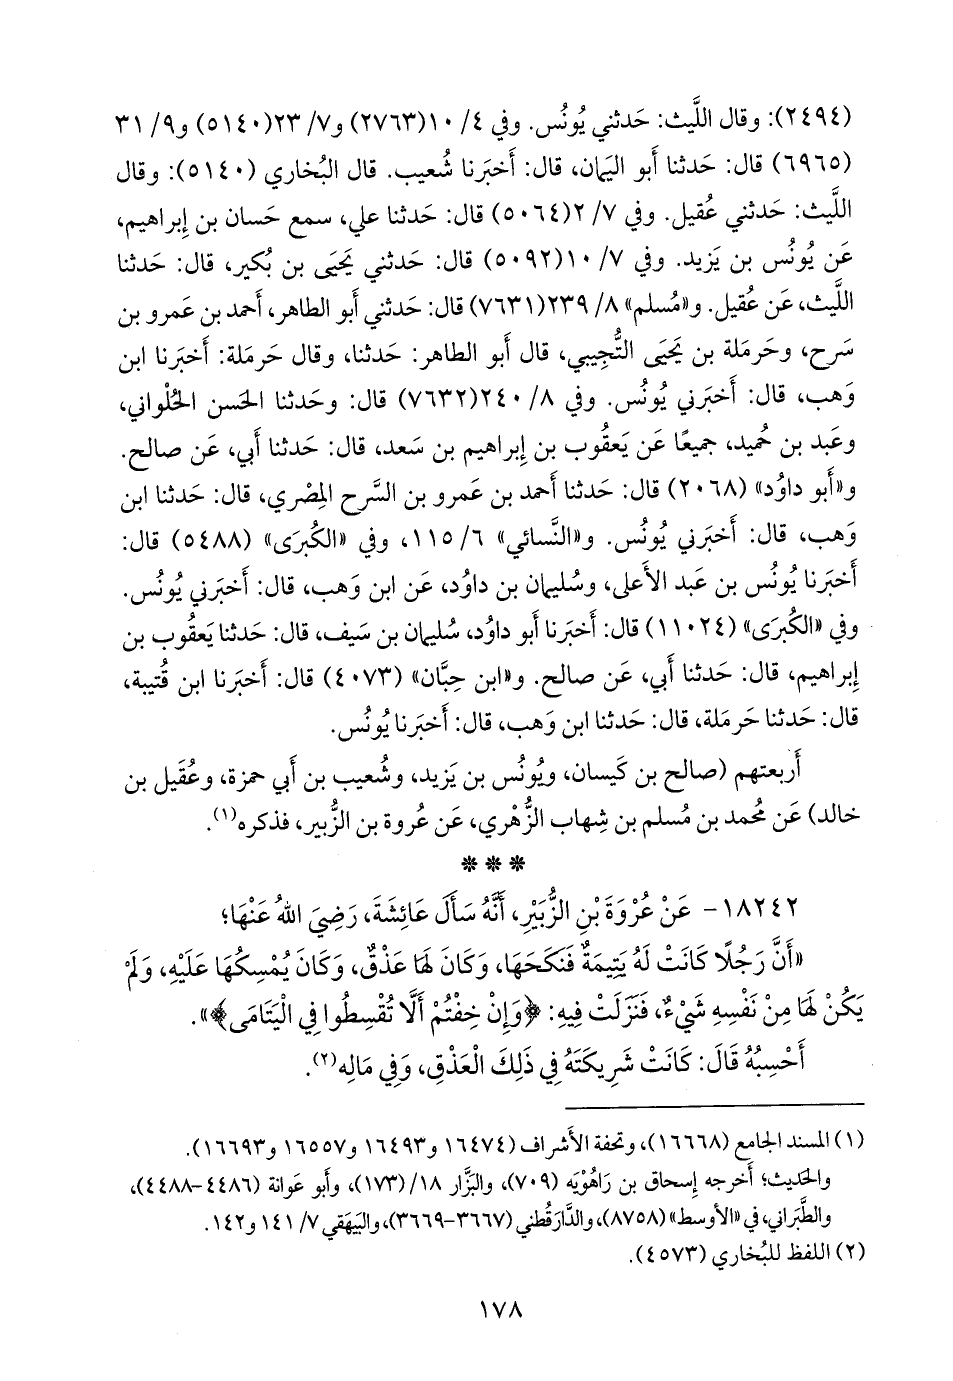 (٢٤٩٤): وقال اللَّيث: حَدثني يُونُس. وفي ٤/ ١٠(٢٧٦٣) و٧/ ٢٣(٥١٤٠) و٩/ ٣١
(٦٩٦٥) قال: حَدثنا أَبو اليَمان، قال: أَخبَرنا شُعيب. قال البُخاري (٥١٤٠): وقال
اللَّيث: حَدثني عُقيل. وفي ٧/ ٢(٥٠٦٤) قال: حَدثنا علي، سمع حَسان بن إِبراهيم،
عَن يُونُس بن يَزيد. وفي ٧/ ١٠(٥٠٩٢) قال: حَدثني يَحيَى بن بُكير، قال: حَدثنا
اللَّيث، عَن عُقيل. و«مُسلم» ٨/ ٢٣٩(٧٦٣١) قال: حَدثني أَبو الطاهر، أَحمد بن عَمرو بن
سَرح، وحَرملة بن يَحيَى التُّجيبي، قال أَبو الطاهر: حَدثنا، وقال حَرملة: أَخبَرنا ابن
وَهب، قال: أَخبَرني يُونُس. وفي ٨/ ٢٤٠(٧٦٣٢) قال: وحَدثنا الحَسن الحُلواني،
وعَبد بن حُميد، جميعًا عَن يَعقُوب بن إِبراهيم بن سَعد، قال: حَدثنا أَبي، عَن صالح.
و«أَبو داوُد» (٢٠٦٨) قال: حَدثنا أَحمد بن عَمرو بن السَّرح المِصْري، قال: حَدثنا ابن
وَهب، قال: أَخبَرني يُونُس. و«النَّسائي» ٦/ ١١٥، وفي «الكُبرَى» (٥٤٨٨) قال:
أَخبَرنا يُونُس بن عَبد الأَعلى، وسُليمان بن داوُد، عَن ابن وَهب، قال: أَخبَرني يُونُس.
وفي «الكُبرَى» (١١٠٢٤) قال: أَخبَرنا أَبو داوُد، سُليمان بن سَيف، قال: حَدثنا يَعقُوب بن
إِبراهيم، قال: حَدثنا أَبي، عَن صالح. و«ابن حِبَّان» (٤٠٧٣) قال: أَخبَرنا ابن قُتيبة،
قال: حَدثنا حَرملة، قال: حَدثنا ابن وَهب، قال: أَخبَرنا يُونُس.
أَربعتهم (صالح بن كَيسان، ويُونُس بن يَزيد، وشُعيب بن أَبي حمزة، وعُقَيل بن
خالد) عَن مُحمد بن مُسلم بن شِهاب الزُّهْري، عَن عُروة بن الزُّبير، فذكره(١).
* * *
١٨٢٤٢- عَنْ عُرْوَةَ بْنِ الزُّبَيْرِ، أَنَّهُ سَأَلَ عَائِشَةَ، رَضِيَ اللهُ عَنْهَا؛
«أَنَّ رَجُلًا كَانَتْ لَهُ يَتِيمَةٌ فَنَكَحَهَا، وَكَانَ لَهَا عَذْقٌ، وَكَانَ يُمْسِكُهَا عَلَيْهِ، وَلَمْ
يَكُنْ لَهَا مِنْ نَفْسِهِ شَيْءٌ، فَنَزَلَتْ فِيهِ: ﴿وَإِنْ خِفْتُمْ أَلَّا تُقْسِطُوا فِي الْيَتَامَى﴾».
أَحْسِبُهُ قَالَ: كَانَتْ شَرِيكَتَهُ فِي ذَلِكَ الْعَذْقِ، وَفِي مَالِهِ(٢).
(١) المسند الجامع (١٦٦٦٨)، وتحفة الأَشراف (١٦٤٧٤ و١٦٤٩٣ و١٦٥٥٧ و١٦٦٩٣).
والحَديث؛ أَخرجه إِسحاق بن رَاهُوْيَه (٧٠٩)، والبَزَّار ١٨/(١٧٣)، وأَبو عَوانة (٤٤٨٦-٤٤٨٨)،
والطَّبَراني، في «الأَوسط» (٨٧٥٨)، والدَّارَقُطني (٣٦٦٧-٣٦٦٩)، والبَيهَقي ٧/ ١٤١ و١٤٢.
(٢) اللفظ للبُخاري (٤٥٧٣).
١٧٨